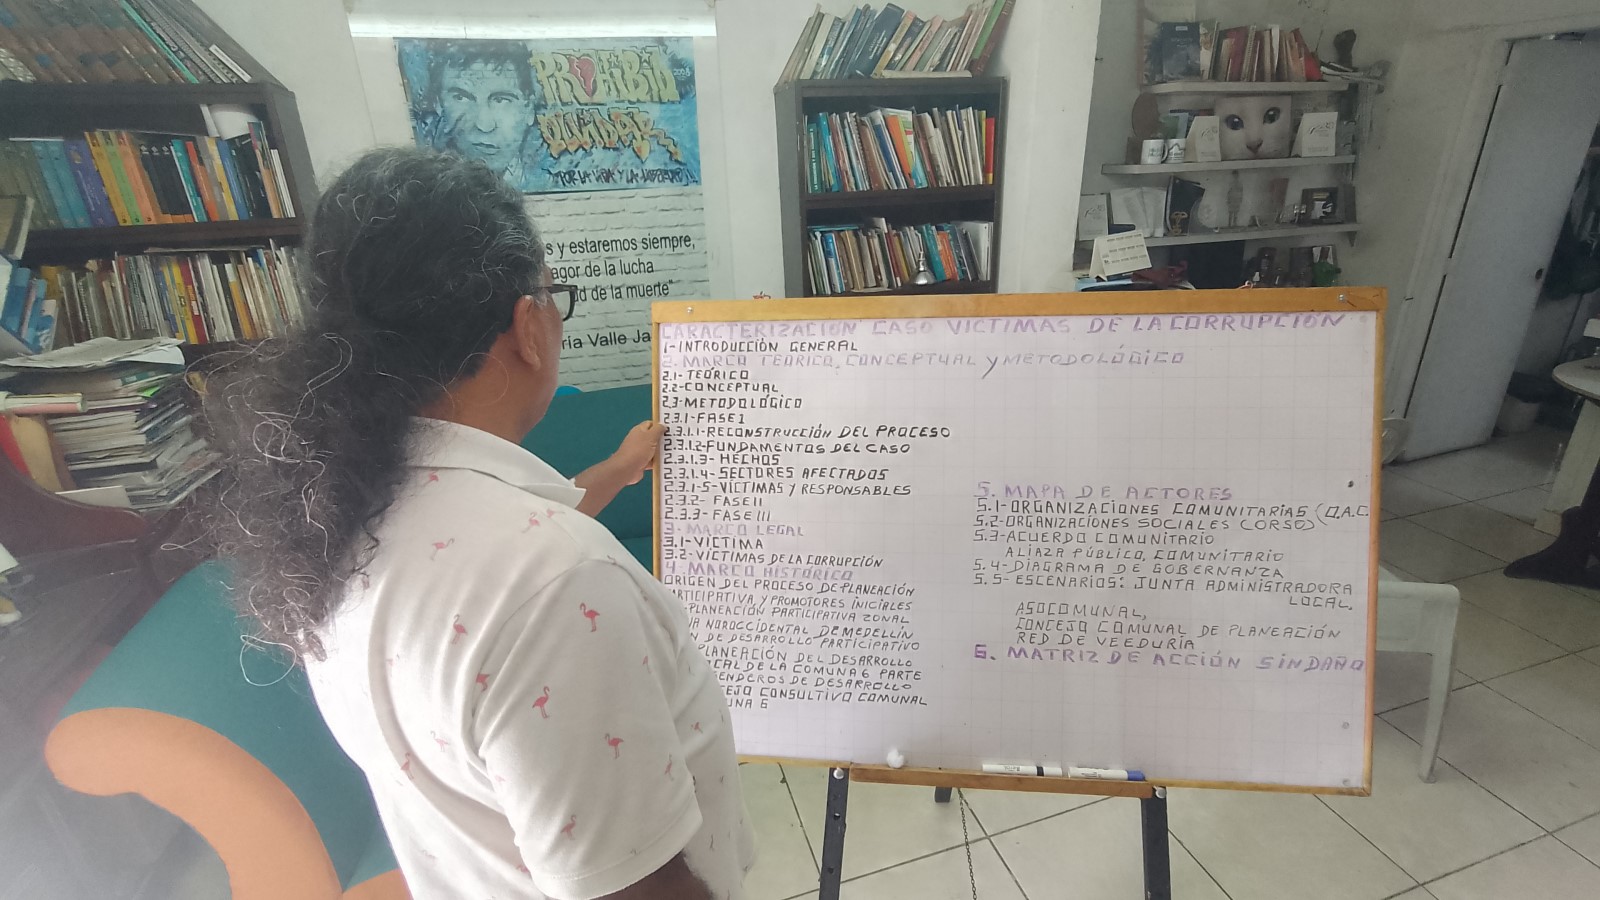 PROHIBID
2008
OLVIDAR
"POR LA VIDA Y LA
s y estaremos siempre,
agor de la lucha
d de la muerte"
ría Valle Ja
CARACTERIZACIÓN CASO VICTIMAS DE LA CORRUPCIÓN
1-INTRODUCCIÓN GENERAL
2. MARCO TEÓRICO, CONCEPTUAL Y METODOLÓGICO
2.1-TEÓRICO
2.2-CONCEPTUAL
2.3-METODOLÓGICO
2.3.1-FASE 1
2.3.1.1-RECONSTRUCCIÓN DEL PROCESO
2.3.1.2-FUNDAMENTOS DEL CASO
2.3.1.3-HECHOS
2.3.1.4-SECTORES AFECTADOS
2.3.1-5-VÍCTIMAS Y RESPONSABLES
2.3.2- FASE II
2.3.3- FASE III
3-MARCO LEGAL
3.1-VÍCTIMA
3.2-VÍCTIMAS DE LA CORRUPCIÓN
4-MARCO HISTÓRICO
ORIGEN DEL PROCESO DE PLANEACIÓN
ARTICIPATIVA Y PROMOTORES INICIALES
-PLANEACIÓN PARTICIPATIVA ZONAL
NA NOROCCIDENTAL DE MEDELLÍN
N DE DESARROLLO PARTICIPATIVO
PLANEACIÓN DEL DESARROLLO
CAL DE LA COMUNA 6 PARTE
ENDEROS DE DESARROLLO
CEJO CONSULTIVO COMUNAL
UNA 6
5. MAPA DE ACTORES
5.1-ORGANIZACIONES COMUNITARIAS (O.A.C.
5.2-ORGANIZACIONES SOCIALES (ORSO)
5.3-ACUERDO COMUNITARIO
ALIAZA PÚBLICO, COMUNITARIO
5.4-DIAGRAMA DE GOBERNANZA
5.5-ESCENARIOS: JUNTA ADMINISTRADORA
LOCAL,
ASOCOMUNAL,
CONCEJO COMUNAL DE PLANEACIÓN
RED DE VEEDURÍA
6. MATRIZ DE ACCIÓN SINDAÑO